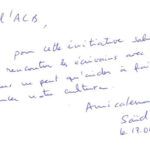 l'ACB,
pour cette initiative
rencontre les écrivains avec
ne peut qu'aider à
notre culture.
Amicalement
Saïd